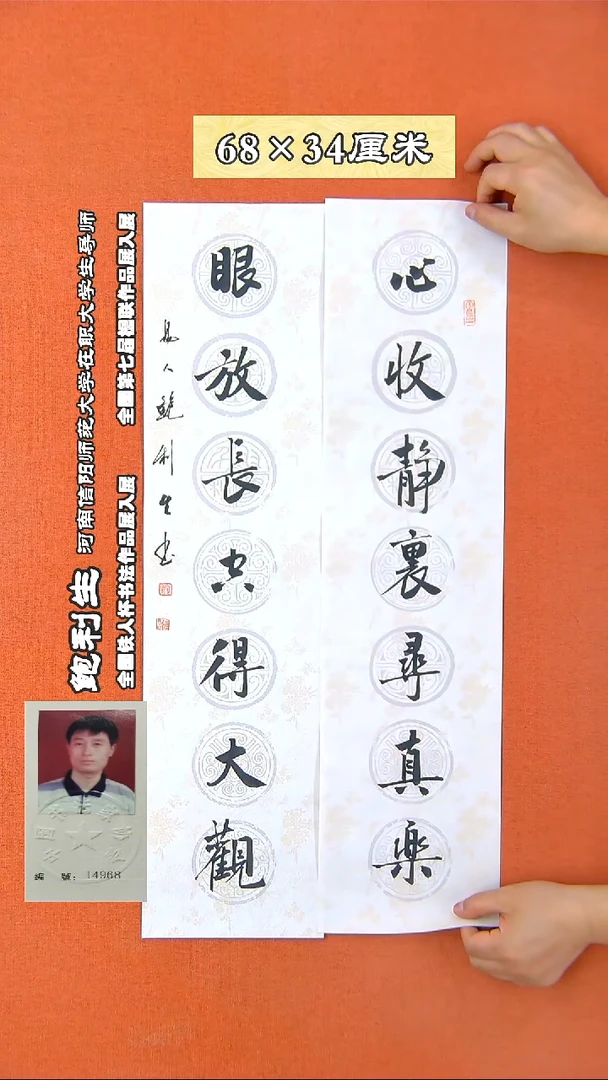 68×34厘米
心收静裏尋真樂
眼放長空得大觀
人鲍利生书
鲍利生 河南信阳师范大学在职大学生导师
全国铁人杯书法作品展入展 全国第七届楹联作品展入展
編 號：14968